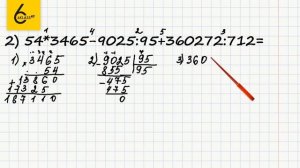 6
1 4 2 5 3
2) 54*3465-9025:95+360272:712=
1) 3465 2) -9025 95 3) 360
54 855 95
+13860 -475
17325 475
187110 0